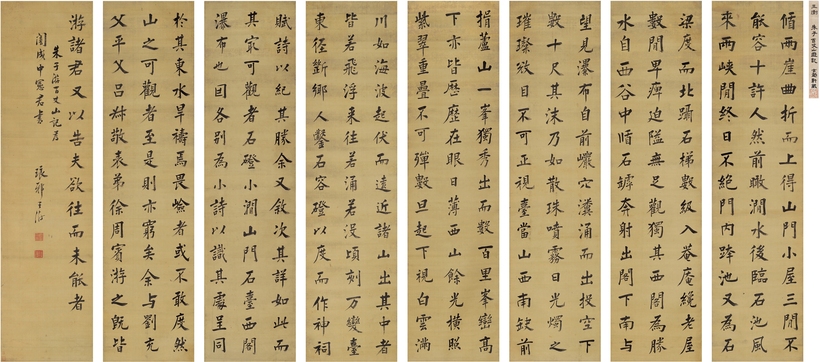 循兩崖曲折而上得山門小屋三間不
能容十許人然前瞰澗水後臨石池風
來兩峽間終日不絕門內跨池又為石
梁度而北躡石梯數級入菴菴纔老屋
數間卑痺迫隘無足觀獨其西閣為勝
水自西谷中循石罅奔射出閣下南與
望見瀑布自前巖穴瀵涌而出投空下
數十尺其沫乃如散珠噴霧日光燭之
璀璨奪目不可正視臺當山西南缺前
揖蘆山一峯獨秀出而數百里峯巒高
下亦皆歷歷在眼日薄西山餘光橫照
紫翠重疊不可殫數旦起下視白雲滿
川如海波起伏而遠近諸山出其中者
皆若飛浮來往若涌若沒頃刻萬變臺
東徑斷鄉人鑿石容磴以度而作神祠
賦詩以紀其勝余又敘次其詳如此而
其最可觀者石磴小澗山門石臺西閣
瀑布也因各別為小詩以識其處呈同
於其東水旱禱焉畏險者或不敢度然
山之可觀者至是則亦窮矣余與劉充
父平父呂叔敬表弟徐周賓游之既皆
游諸君又以告夫欲往而未能者
朱子游百丈山記
琅邪王澍
王澍 朱子百丈山遊記